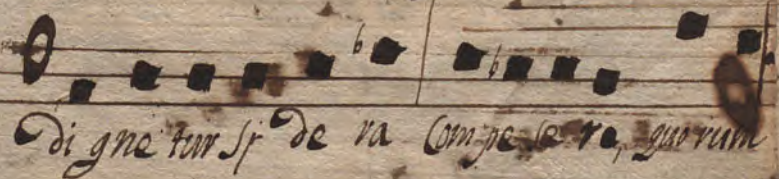 Di gne tur sy de ra Com pe se re, quo rum